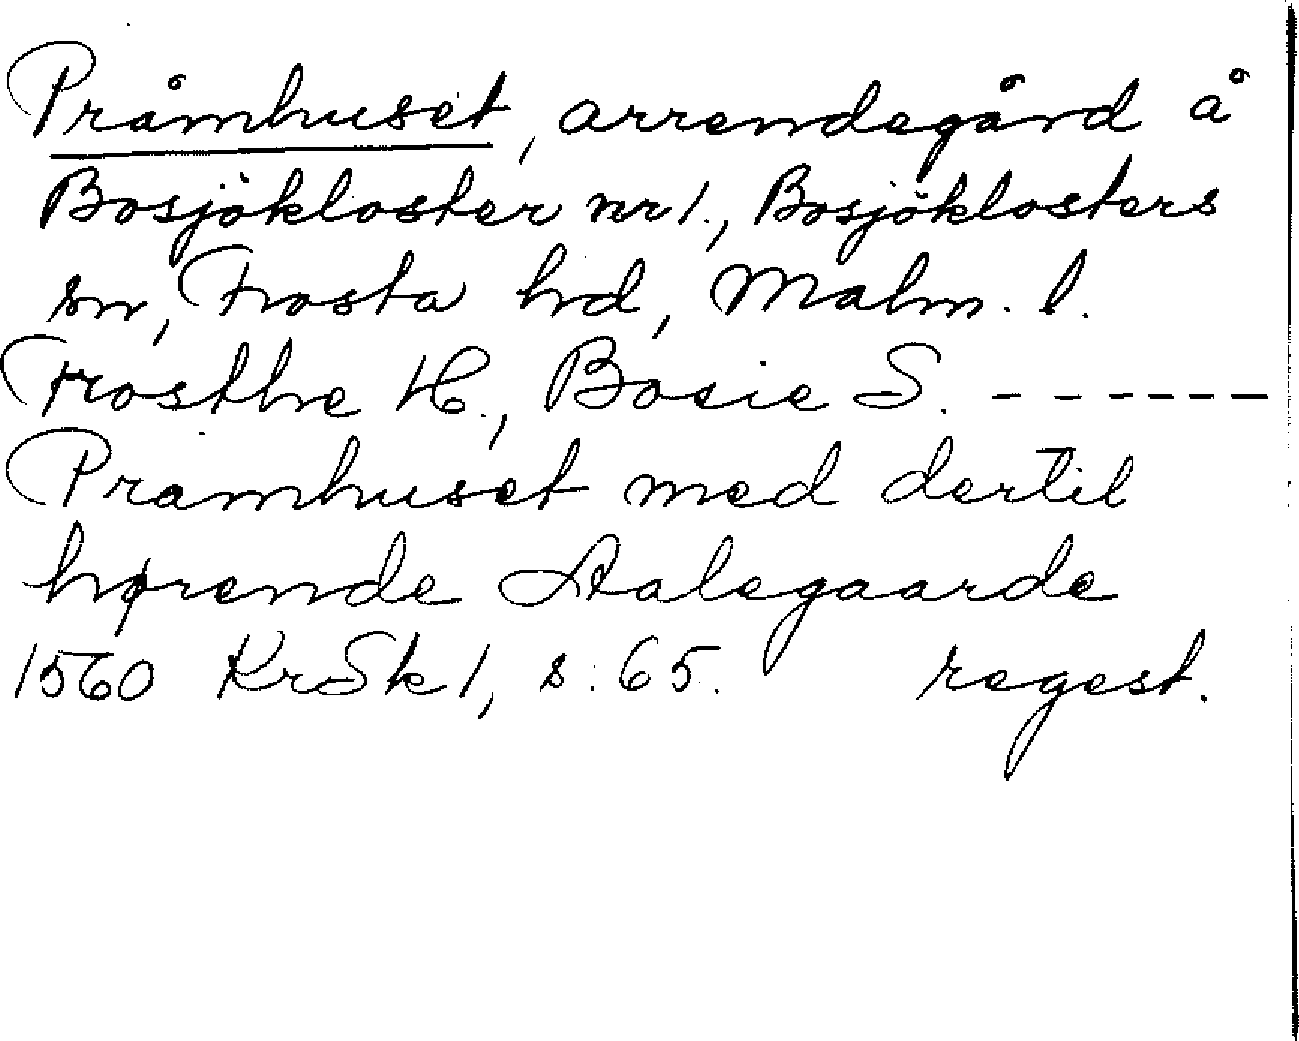 Pråmhuset, arrendegård å
Bosjökloster nr 1., Bosjöklosters
sn, Frosta hd, Malm. l.
Frosthe H., Bosie S. ------
Pramhuset med dertil
hørende Aalegaarde
1560 KrSk 1, s: 65. regest.